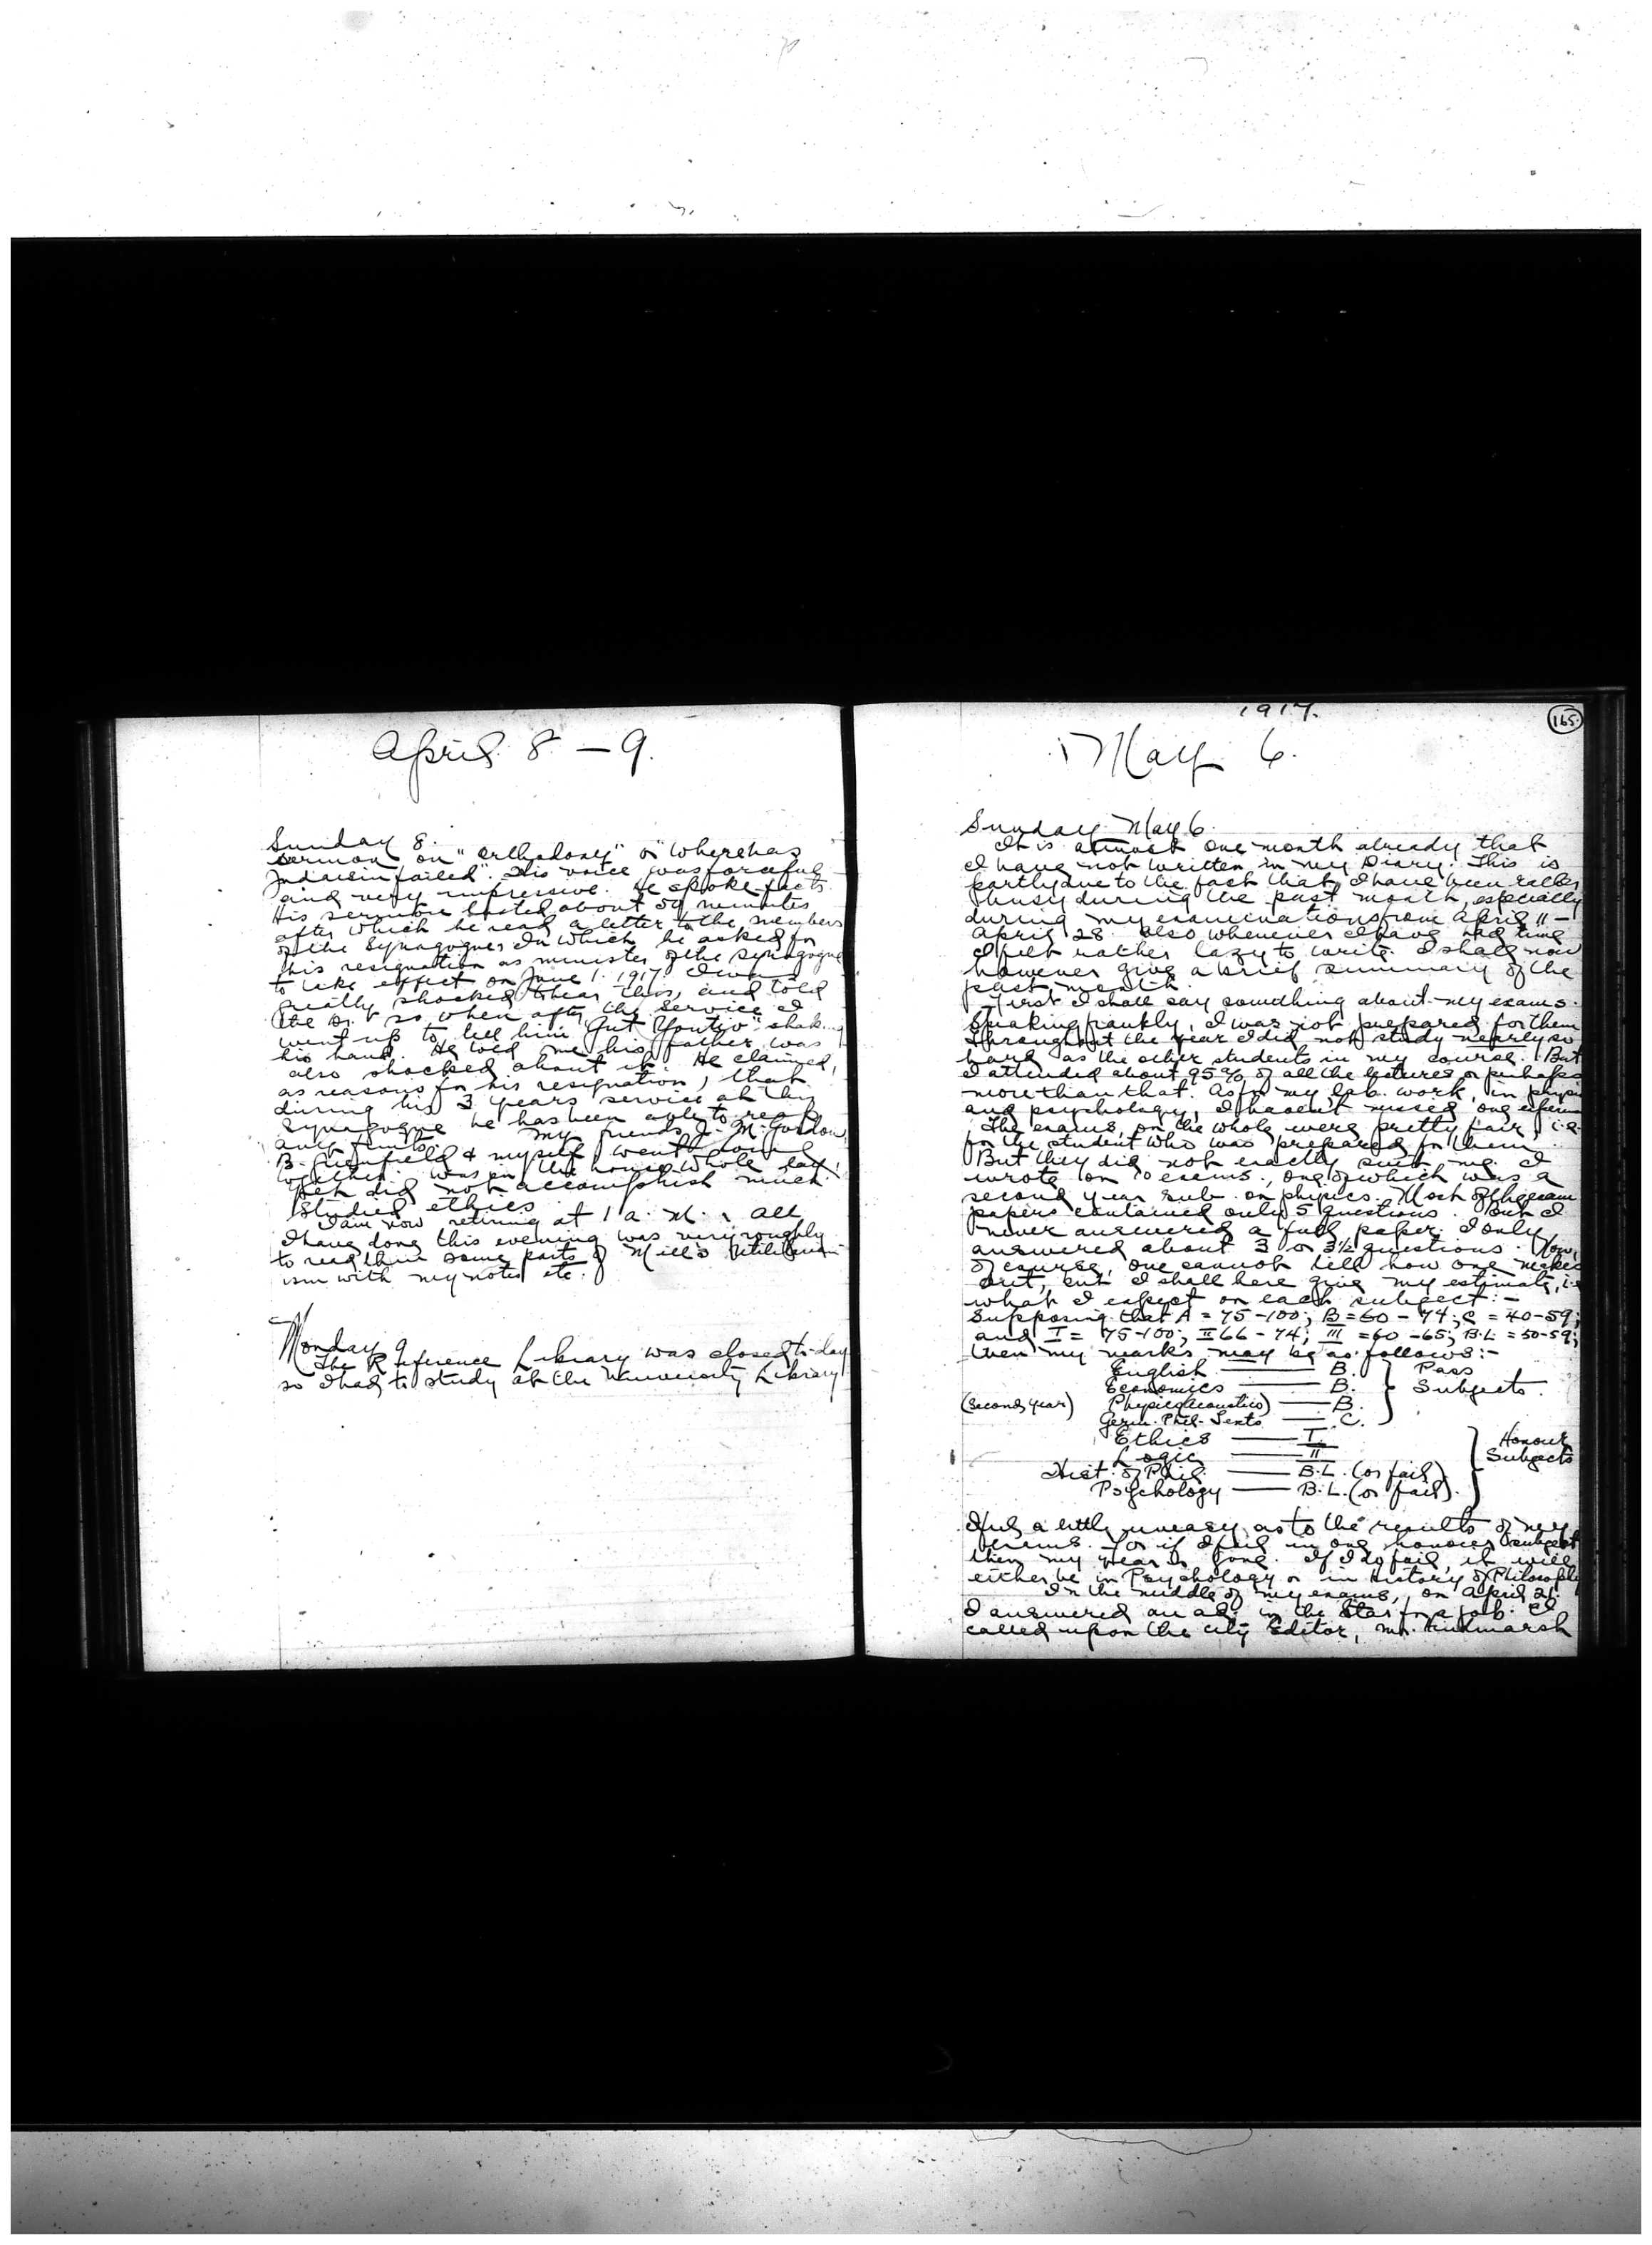 April 8 - 9.
Sunday 8.
sermon on "Orthodoxy" or "Where has
Judaism failed". His voice was forceful
and very impressive. He spoke facts.
His sermon lasted about 50 minutes
after which he read a letter to the members
of the Synagogue, in which he asked for
his resignation as minister of the Synagogue
to take effect on June 1. 1917. I was
greatly shocked to hear this, and told
the Dr. so when after the service I
went up to tell him "Gut Yontiv" shaking
his hand. He told me his father was
also shocked about it. He claimed,
as reasons for his resignation, that
during his 3 years service at the
Synagogue he has been able to reap
any fruits. My friends J. M. Gordon,
B. Greenfield & myself went home
together. Was in the house whole day,
yet did not accomplish much.
Studied ethics.
I am now retiring at 1 a. M. All
I have done this evening was very roughly
to read thru some parts of Mill's Utilitarian-
ism with my notes etc.
Monday 9
The Reference Library was closed to-day
so I had to study at the University Library
1917.
165.
May 6.
Sunday May 6.
It is almost one month already that
I have not written in my Diary. This is
partly due to the fact that I have been rather
busy during the past month, especially
during my examinations from April 11 -
April 28. Also whenever I have had time
I felt rather lazy to write. I shall now
however give a brief summary of the
past month.
First I shall say something about my exams.
Speaking frankly, I was not prepared for them
Throughout the year I did not study nearly so
hard as the other students in my course. But
I attended about 95% of all the lectures or perhaps
more than that. As for my lab. work, in physics
and psychology, I haven't missed one
The exams, on the whole were pretty fair i.e.
for the student who was prepared for them.
But they did not exactly suit me. I
wrote on 10 exams., one of which was a
second year sub. on physics. Most of the exam
papers contained only 5 questions. But I
never answered a full paper. I only
answered about 3 or 3½ questions. Now,
of course, one cannot tell how one makes
out, but I shall here give my estimate, i.e
what I expect on each subject:-
Supposing that A = 75-100; B = 60 - 74; C = 40-59;
and I = 75-100; II 66 - 74; III = 60 - 65; B.L = 50-59;
then my marks may be as follows:-
English — B. } Pass
Economics — B. Subjects.
(Second year) Physics (Acoustics) — B.
Germ. Phil. Texts — C.
Ethics — I } Honour
Logic — II Subjects
Hist. of Phil. — B.L. (or fail)
Psychology — B.L. (or fail).
I feel a little uneasy as to the results of my
exams. For if I fail in one honour subject
then my year is gone. If I do fail, it will
either be in Psychology or in History of Philosophy
In the middle of my exams, on April 21
I answered an ad. in the Star for a job. I
called upon the City Editor, Mr. Hindmarsh